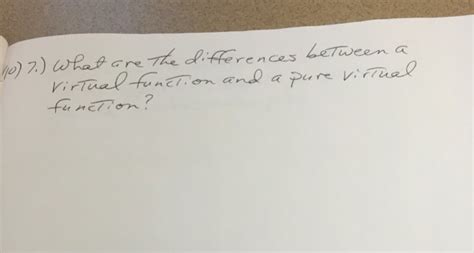 10) 7.) What are The differences between a
virtual function and a pure virtual
function?